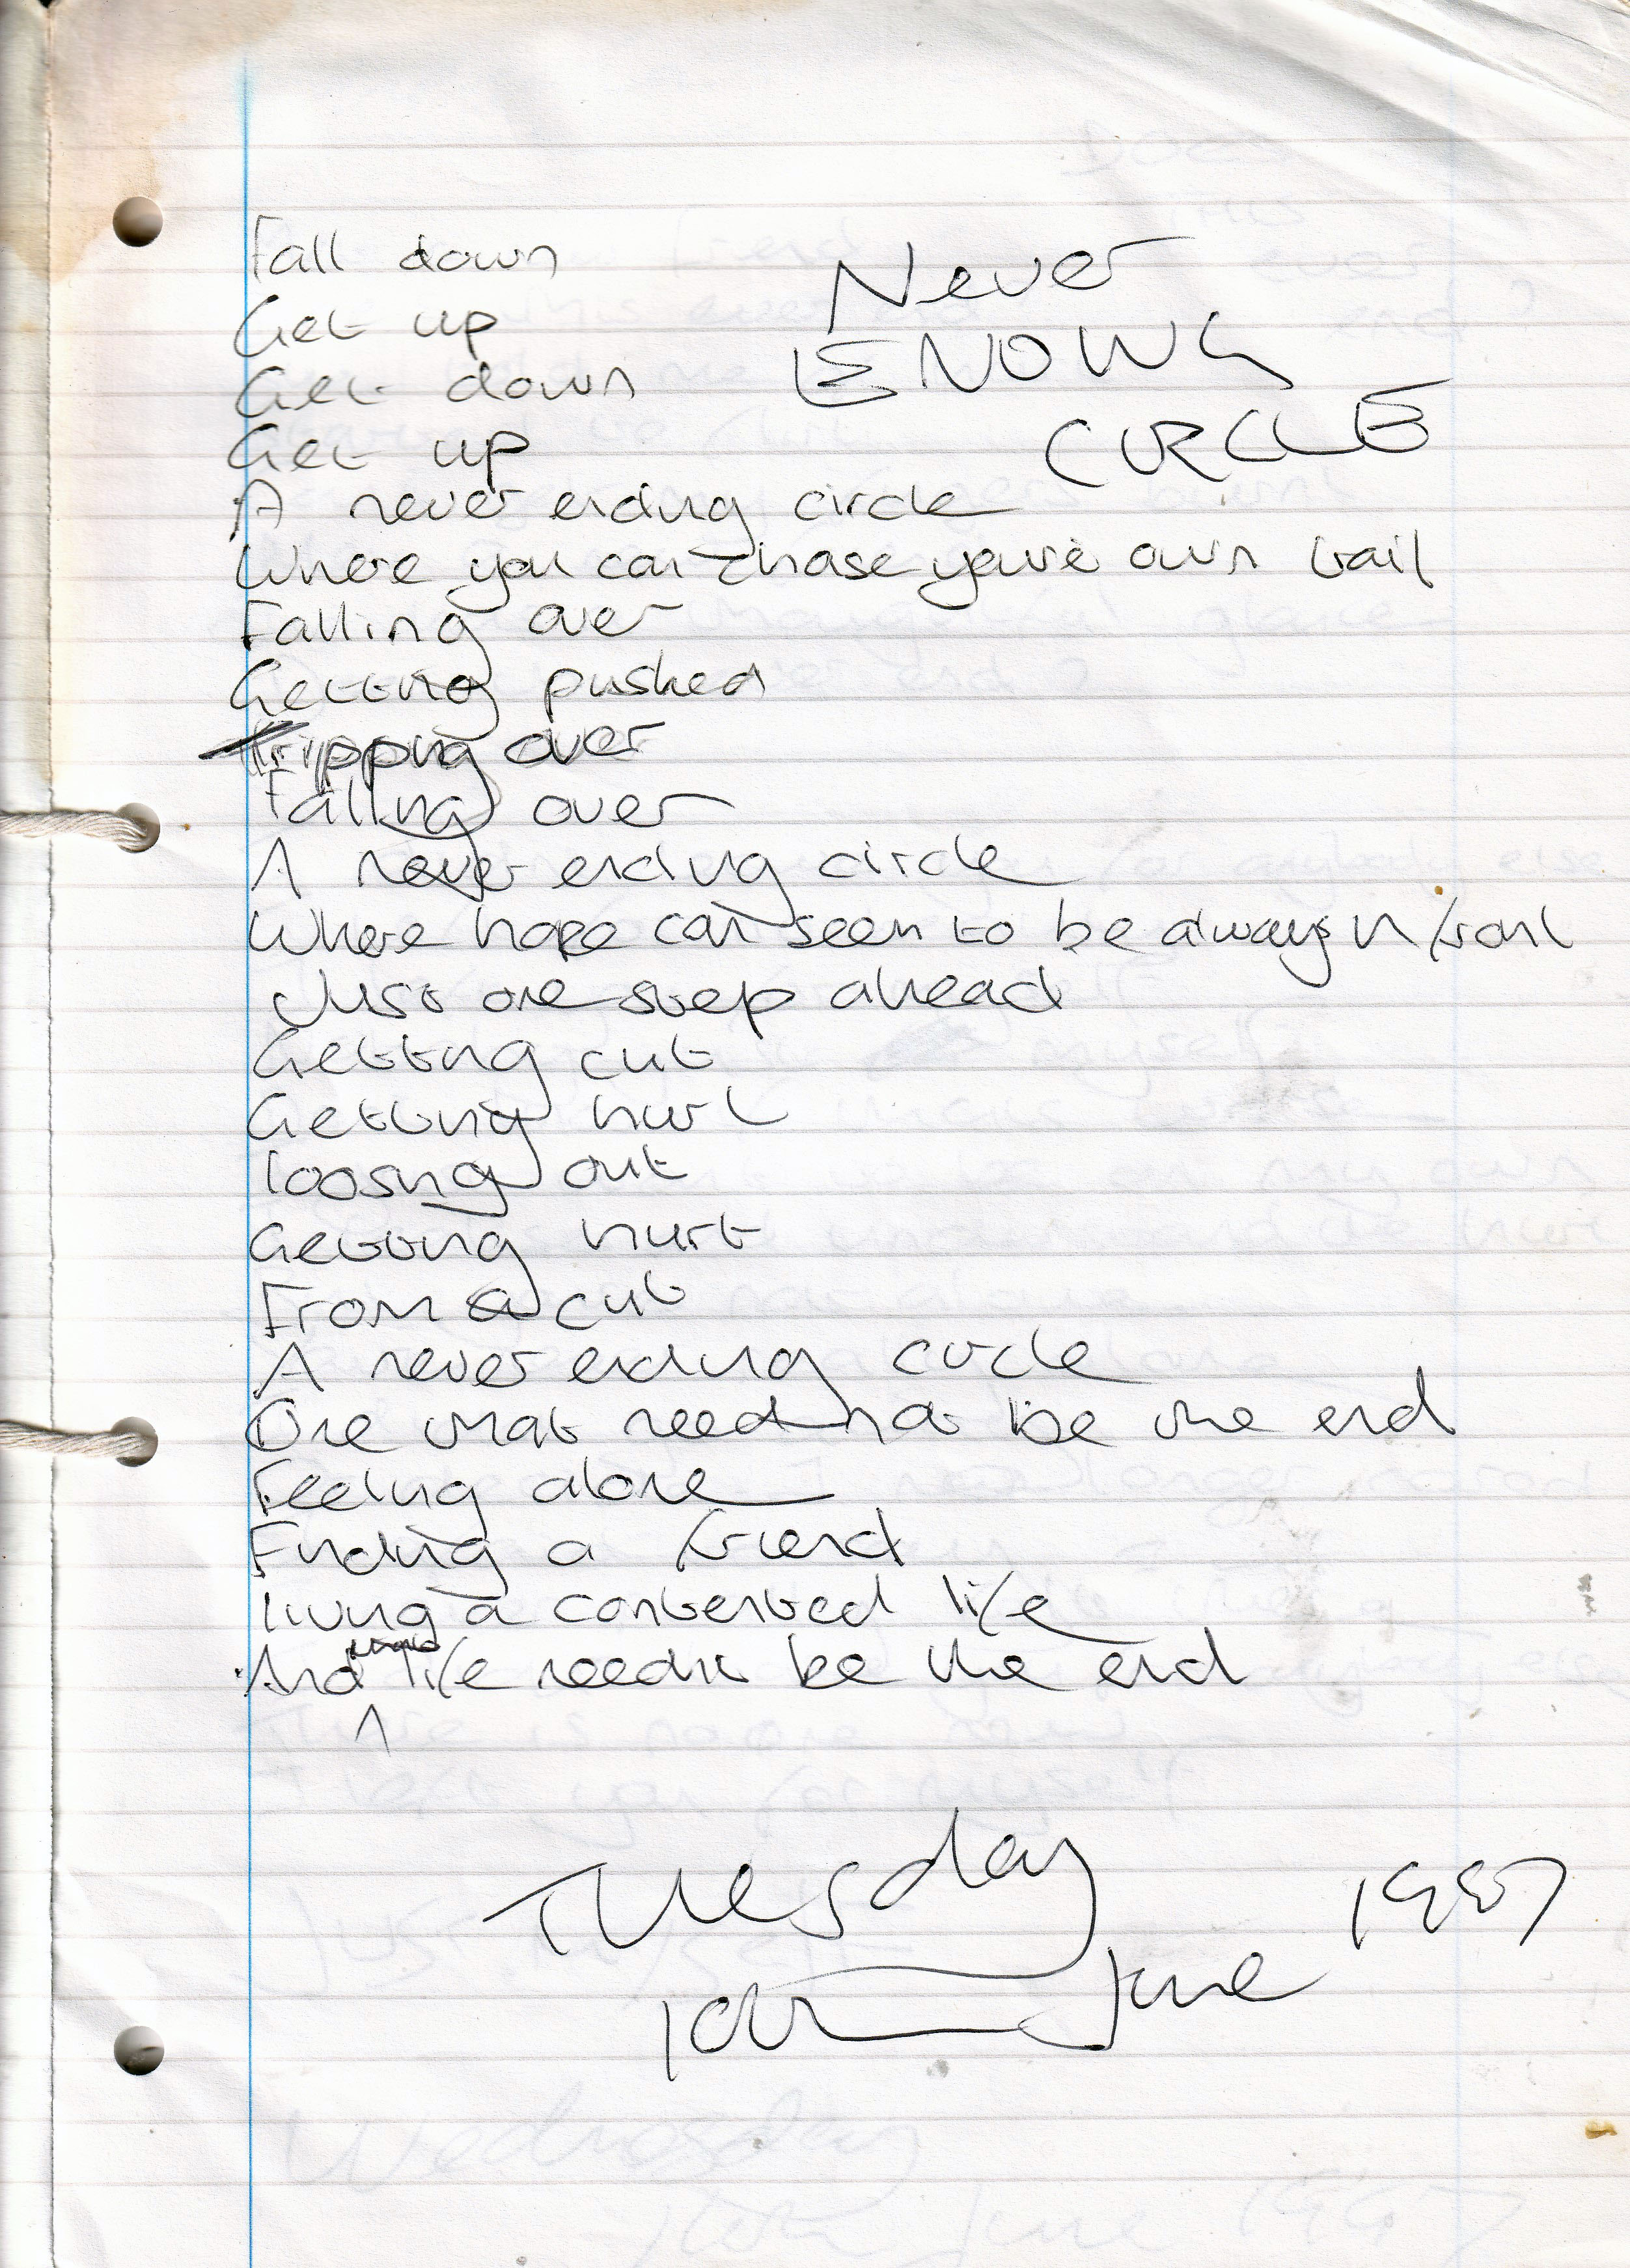 Never
ENDING
CIRCLE
Fall down
Get up
Get down
Get up
A never ending circle
Where you can chase youre own tail
Falling over
Getting pushed
Tripping over
Falling over
A never ending circle
Where hope can seem to be always in front
Just one step ahead
Getting cut
Getting hurt
loosing out
Getting hurt
From a cut
A never ending circle
One that need not be the end
Feeling alone
Finding a friend
living a contented life
And life neednt be the end
Tuesday
10th June 1997